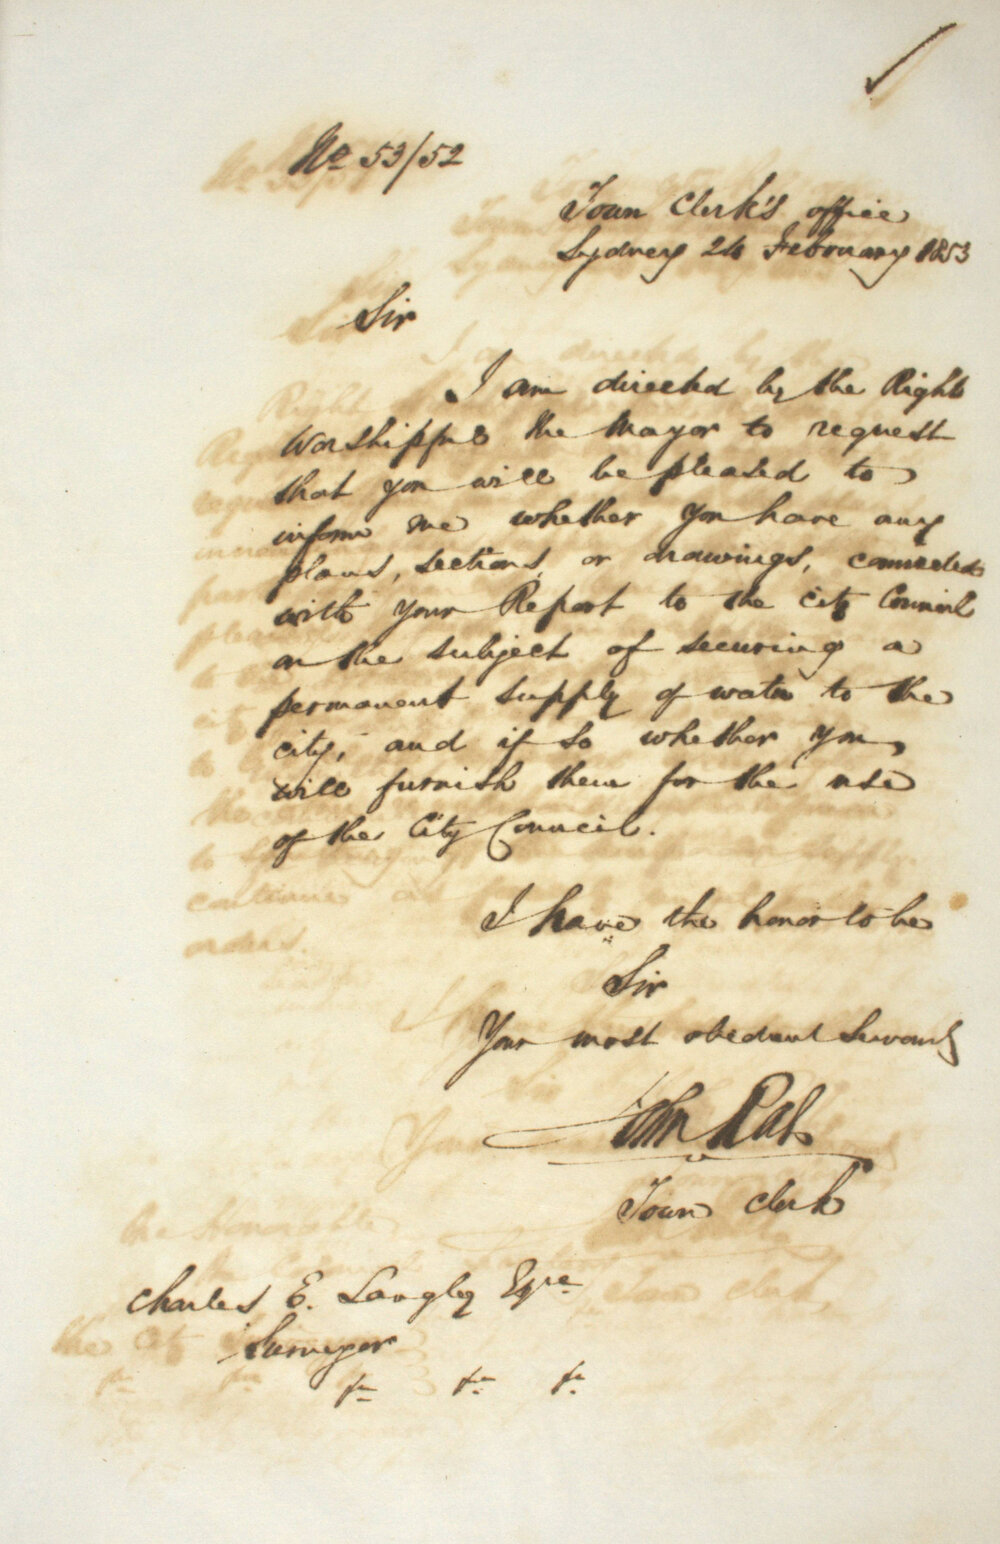 No 53/52
Town Clerk's office
Sydney 24 February 1853
Sir
I am directed by the Right
Worshipful the Mayor to request
that you will be pleased to
inform me whether you have any
plans, sections, or drawings, connected
with your Report to the City Council
on the subject of securing a
permanent supply of water to the
city, and if so whether you
will furnish them for the use
of the City Council.
I have the honor to be
Sir
Your most obedient Servant
John Rae
Town Clerk
Charles E. Langley Esqre
Surveyor
&c &c &c